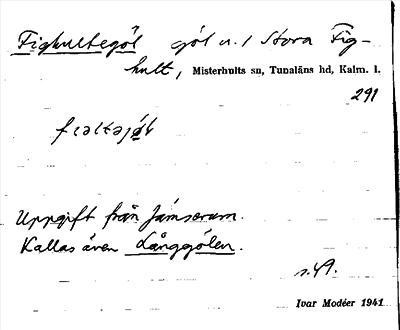 Fighultegöl göl u. / Stora Fig-
hult, Misterhults sn, Tunaläns hd, Kalm. l.
291
Uppgift från Jämserum.
Kallas även Långgölen.
s. 49.
Ivar Modéer 1941